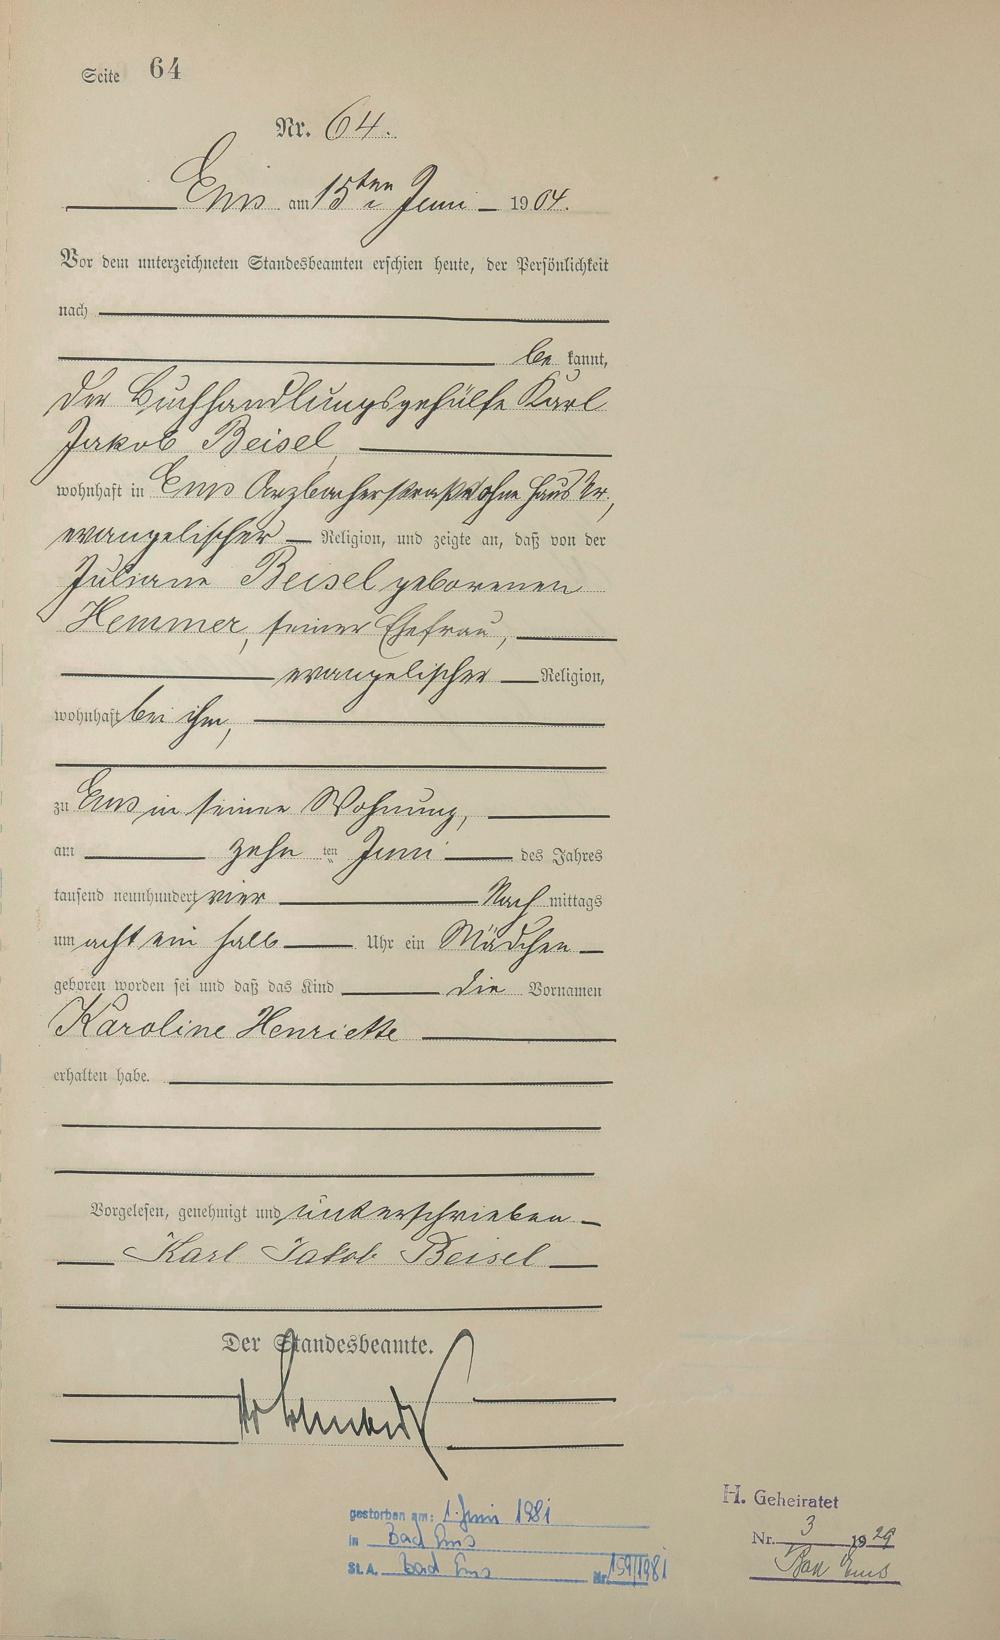 Seite 64
Nr. 64.
Ems am 15ten Juni 1904.
Vor dem unterzeichneten Standesbeamten erschien heute, der Persönlichkeit
nach
be kannt,
der Buchhandlungsgehülfe Karl
Jakob Beisel
wohnhaft in Ems Arzbacherstraße ohne Haus Nr.,
evangelischer Religion, und zeigte an, daß von der
Juliane Beisel geborenen
Hemmer, seiner Ehefrau,
evangelischer Religion,
wohnhaft bei ihm,
zu Ems in seiner Wohnung,
am zehn ten Juni des Jahres
tausend neunhundert vier Nach mittags
um acht ein halb Uhr ein Mädchen
geboren worden sei und daß das Kind die Vornamen
Karoline Henriette
erhalten habe.
Vorgelesen, genehmigt und unterschrieben
Karl Jakob Beisel
Der Standesbeamte.
gestorben am: 1. Juni 1981
in Bad Ems
St.A. Bad Ems Nr. 159/1981
H. Geheiratet
Nr. 3 1929
Bad Ems